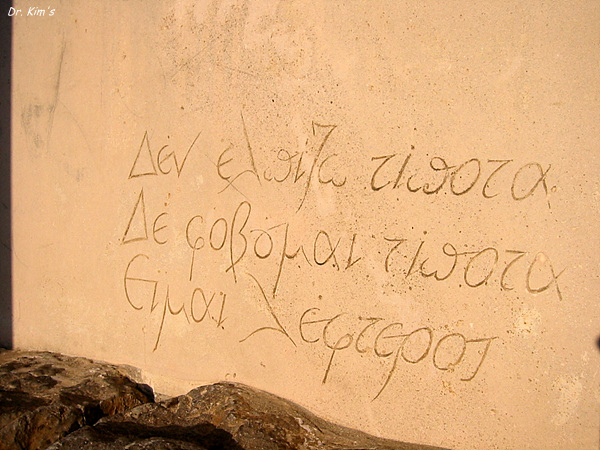 Dr. Kim's
Δεν ελπιζω τιποτα
Δε φοβομαι τιποτα
Ειμαι λεφτερος